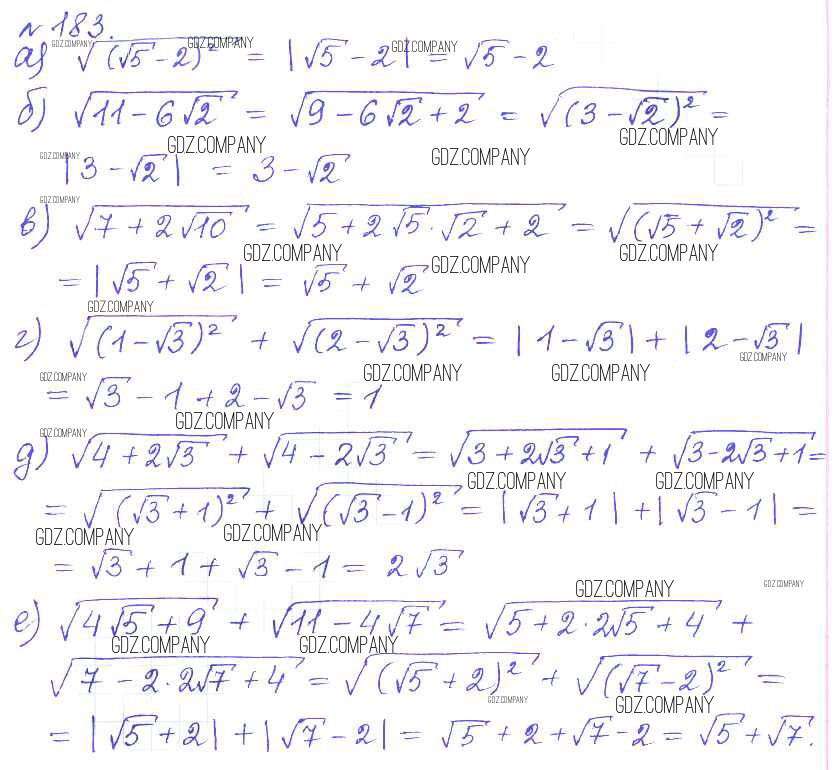 № 183.
а) √(√5 - 2)² = |√5 - 2| = √5 - 2
б) √(11 - 6√2) = √(9 - 6√2 + 2) = √(3 - √2)² =
|3 - √2| = 3 - √2
в) √(7 + 2√10) = √(5 + 2√5·√2 + 2) = √(√5 + √2)² =
= |√5 + √2| = √5 + √2
г) √(1 - √3)² + √(2 - √3)² = |1 - √3| + |2 - √3|
= √3 - 1 + 2 - √3 = 1
д) √(4 + 2√3) + √(4 - 2√3) = √(3 + 2√3 + 1) + √(3 - 2√3 + 1) =
= √(√3 + 1)² + √(√3 - 1)² = |√3 + 1| + |√3 - 1| =
= √3 + 1 + √3 - 1 = 2√3
е) √(4√5 + 9) + √(11 - 4√7) = √(5 + 2·2√5 + 4) +
√(7 - 2·2√7 + 4) = √(√5 + 2)² + √(√7 - 2)² =
= |√5 + 2| + |√7 - 2| = √5 + 2 + √7 - 2 = √5 + √7.
GDZ.COMPANY